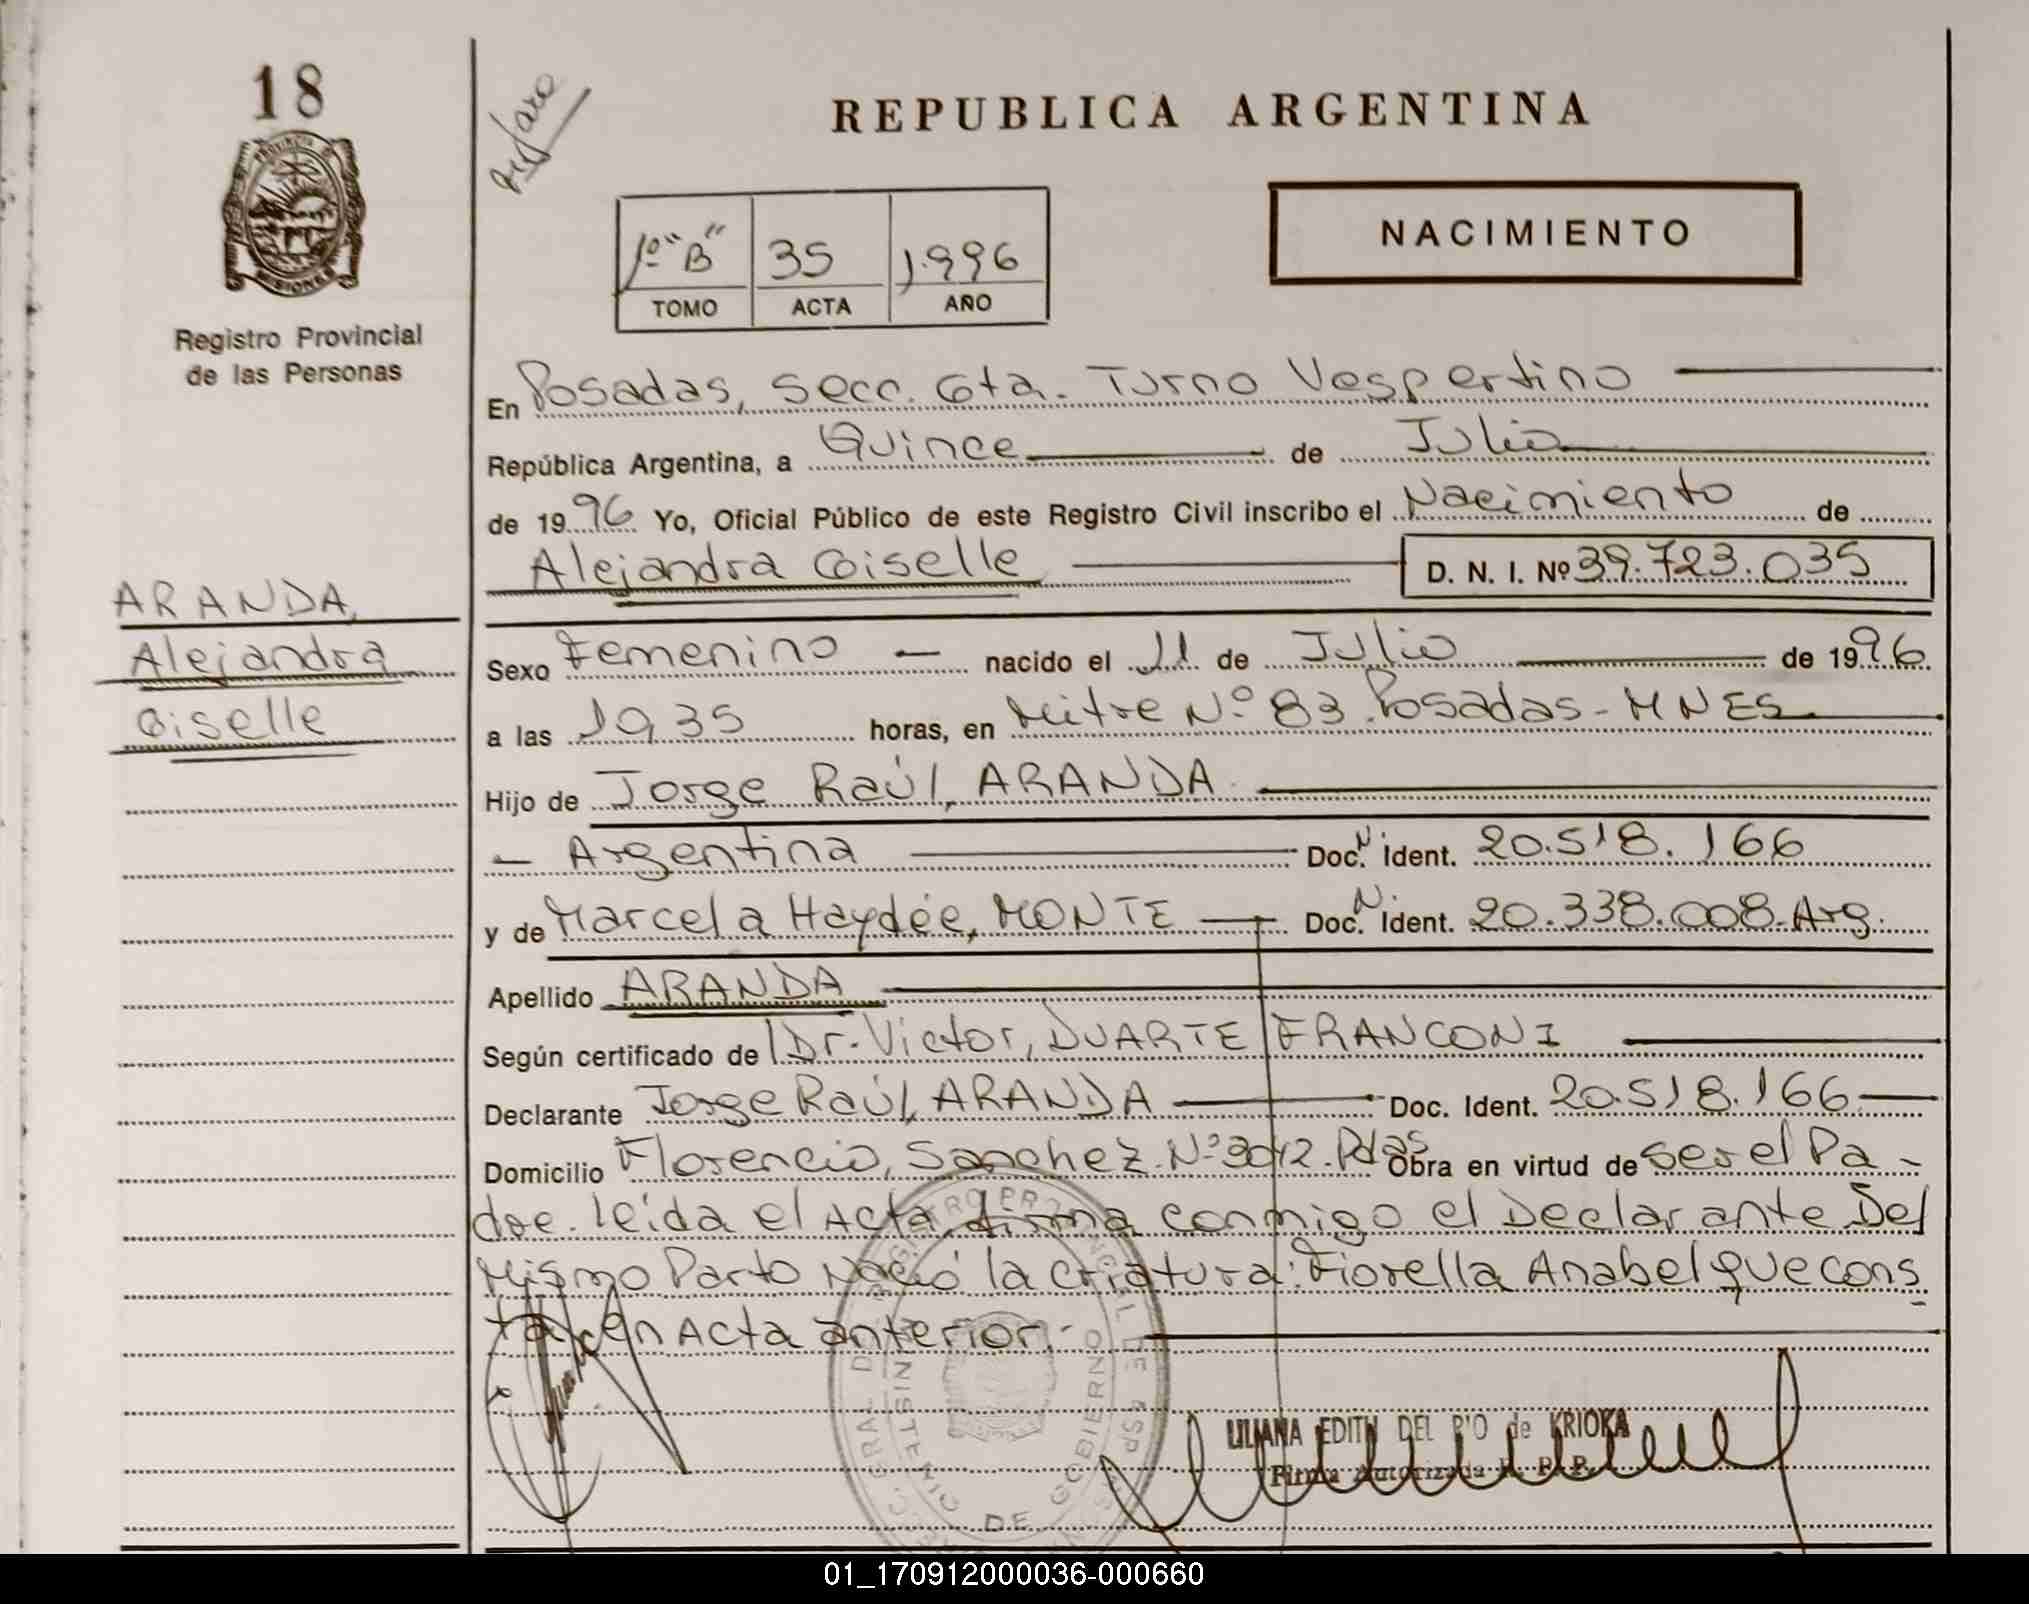 18
Registro Provincial
de las Personas
REPUBLICA ARGENTINA
NACIMIENTO
1º "B" 35 1.996
TOMO ACTA AÑO
En Posadas, Secc. 6ta. Turno Vespertino
República Argentina, a Quince de Julio
de 1996 Yo, Oficial Público de este Registro Civil inscribo el Nacimiento de
Alejandra Giselle D. N. I. Nº 39.723.035
ARANDA,
Alejandra
Giselle
Sexo Femenino - nacido el 11 de Julio de 1996
a las 19,35 horas, en Mitre Nº 83. Posadas - MNES
Hijo de Jorge Raúl, ARANDA
- Argentina Doc. N Ident. 20.518.166
y de Marcela Haydée, MONTE Doc. N Ident. 20.338.008-Arg.
Apellido ARANDA
Según certificado de Dr. Victor, DUARTE FRANCONI
Declarante Jorge Raúl, ARANDA Doc. Ident. 20.518.166
Domicilio Florencio, Sanchez Nº 3042. Pdas Obra en virtud de ser el Pa-
dre. leída el Acta, firma conmigo el Declarante Del
Mismo Parto Nació la criatura: Fiorella Anabel que cons
ta en Acta anterior.-
LILIANA EDITH DEL RIO de KRIOKA
Firma Autorizada R. P. P.
DE GOBIERNO
01_170912000036-000660